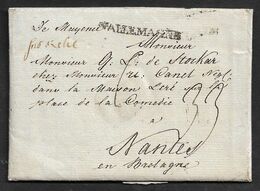 ALLEMAGNE
Monsieur
Monsieur G. L. de Stockar
chez Monsieur Canet Negt
dans la Maison Léré
place de la Comedie
à
Nantes
en Bretagne
33